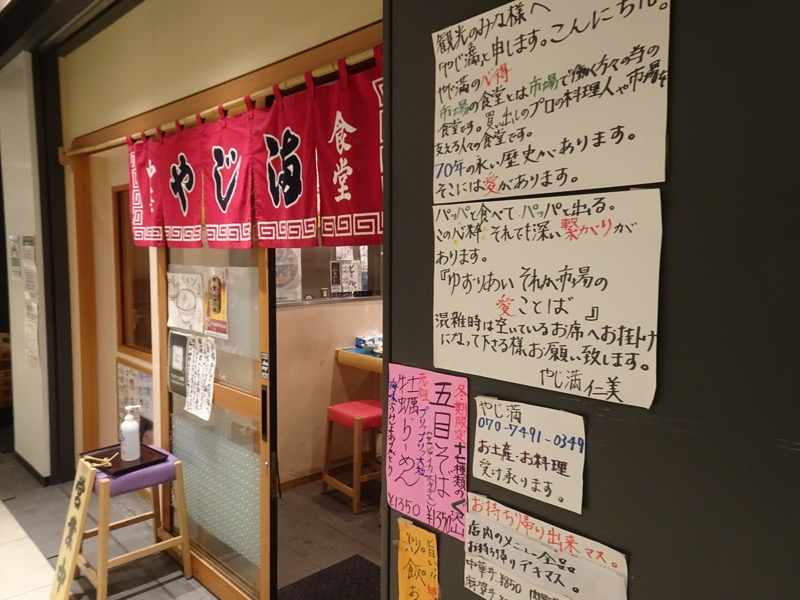 中華
やじ満
食堂
観光のみな様へ
『やじ満』と申します。こんにちは。
やじ満の心得
市場の食堂とは市場で働く方々の為の
食堂です。買い出しのプロの料理人や市場を
支える人々の食堂です。
70年の永い歴史があります。
そこには愛があります。
パッパと食べてパッパと出る。
この心粋 それでも深い繋がりが
あります。
『ゆずりあい それが市場の
愛ことば』
混雑時は空いているお席へお掛け
になって下さる様お願い致します。
やじ満 仁美
冬期限定 十七種類の
五目そば
¥1350
元祖 プリップリッ
牡蠣らーめん
¥1350
やじ満
070-7491-0349
お土産・お料理
受け承ります。
お持ち帰り出来マス。
店内のメニュー全品
お持ち帰りデキマス。
中華丼 ¥850
旨い!!
炒飯
営業中